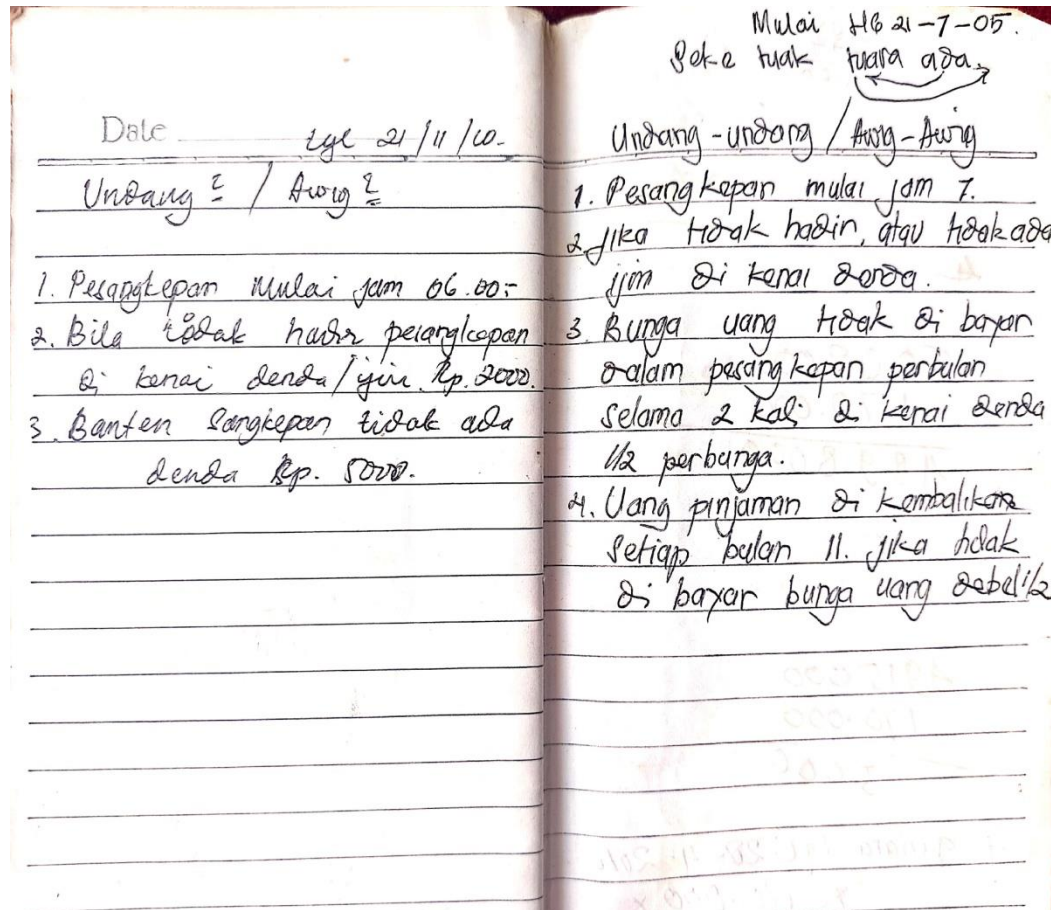 Date tgl 21/11/10-
Undang2 / Awig2
1. Pesangkepan mulai jam 06.00:-
2. Bila tidak hadir pesangkepan
di kenai denda/ijin Rp. 2000.
3. Banten sangkepan tidak ada
denda Rp. 5000.
Mulai HG 21-7-05.
Seke tuak tuara ada.
Undang-undang / Awig-Awig
1. Pesangkepan mulai jam 7.
2. jika tidak hadir, atau tidak ada
ijin di kenai denda.
3. Bunga uang tidak di bayar
dalam pesangkepan perbulan
selama 2 kali di kenai denda
1/2 perbunga.
4. Uang pinjaman di kembalikan
setiap bulan 11. jika tidak
di bayar bunga uang debel 1/2